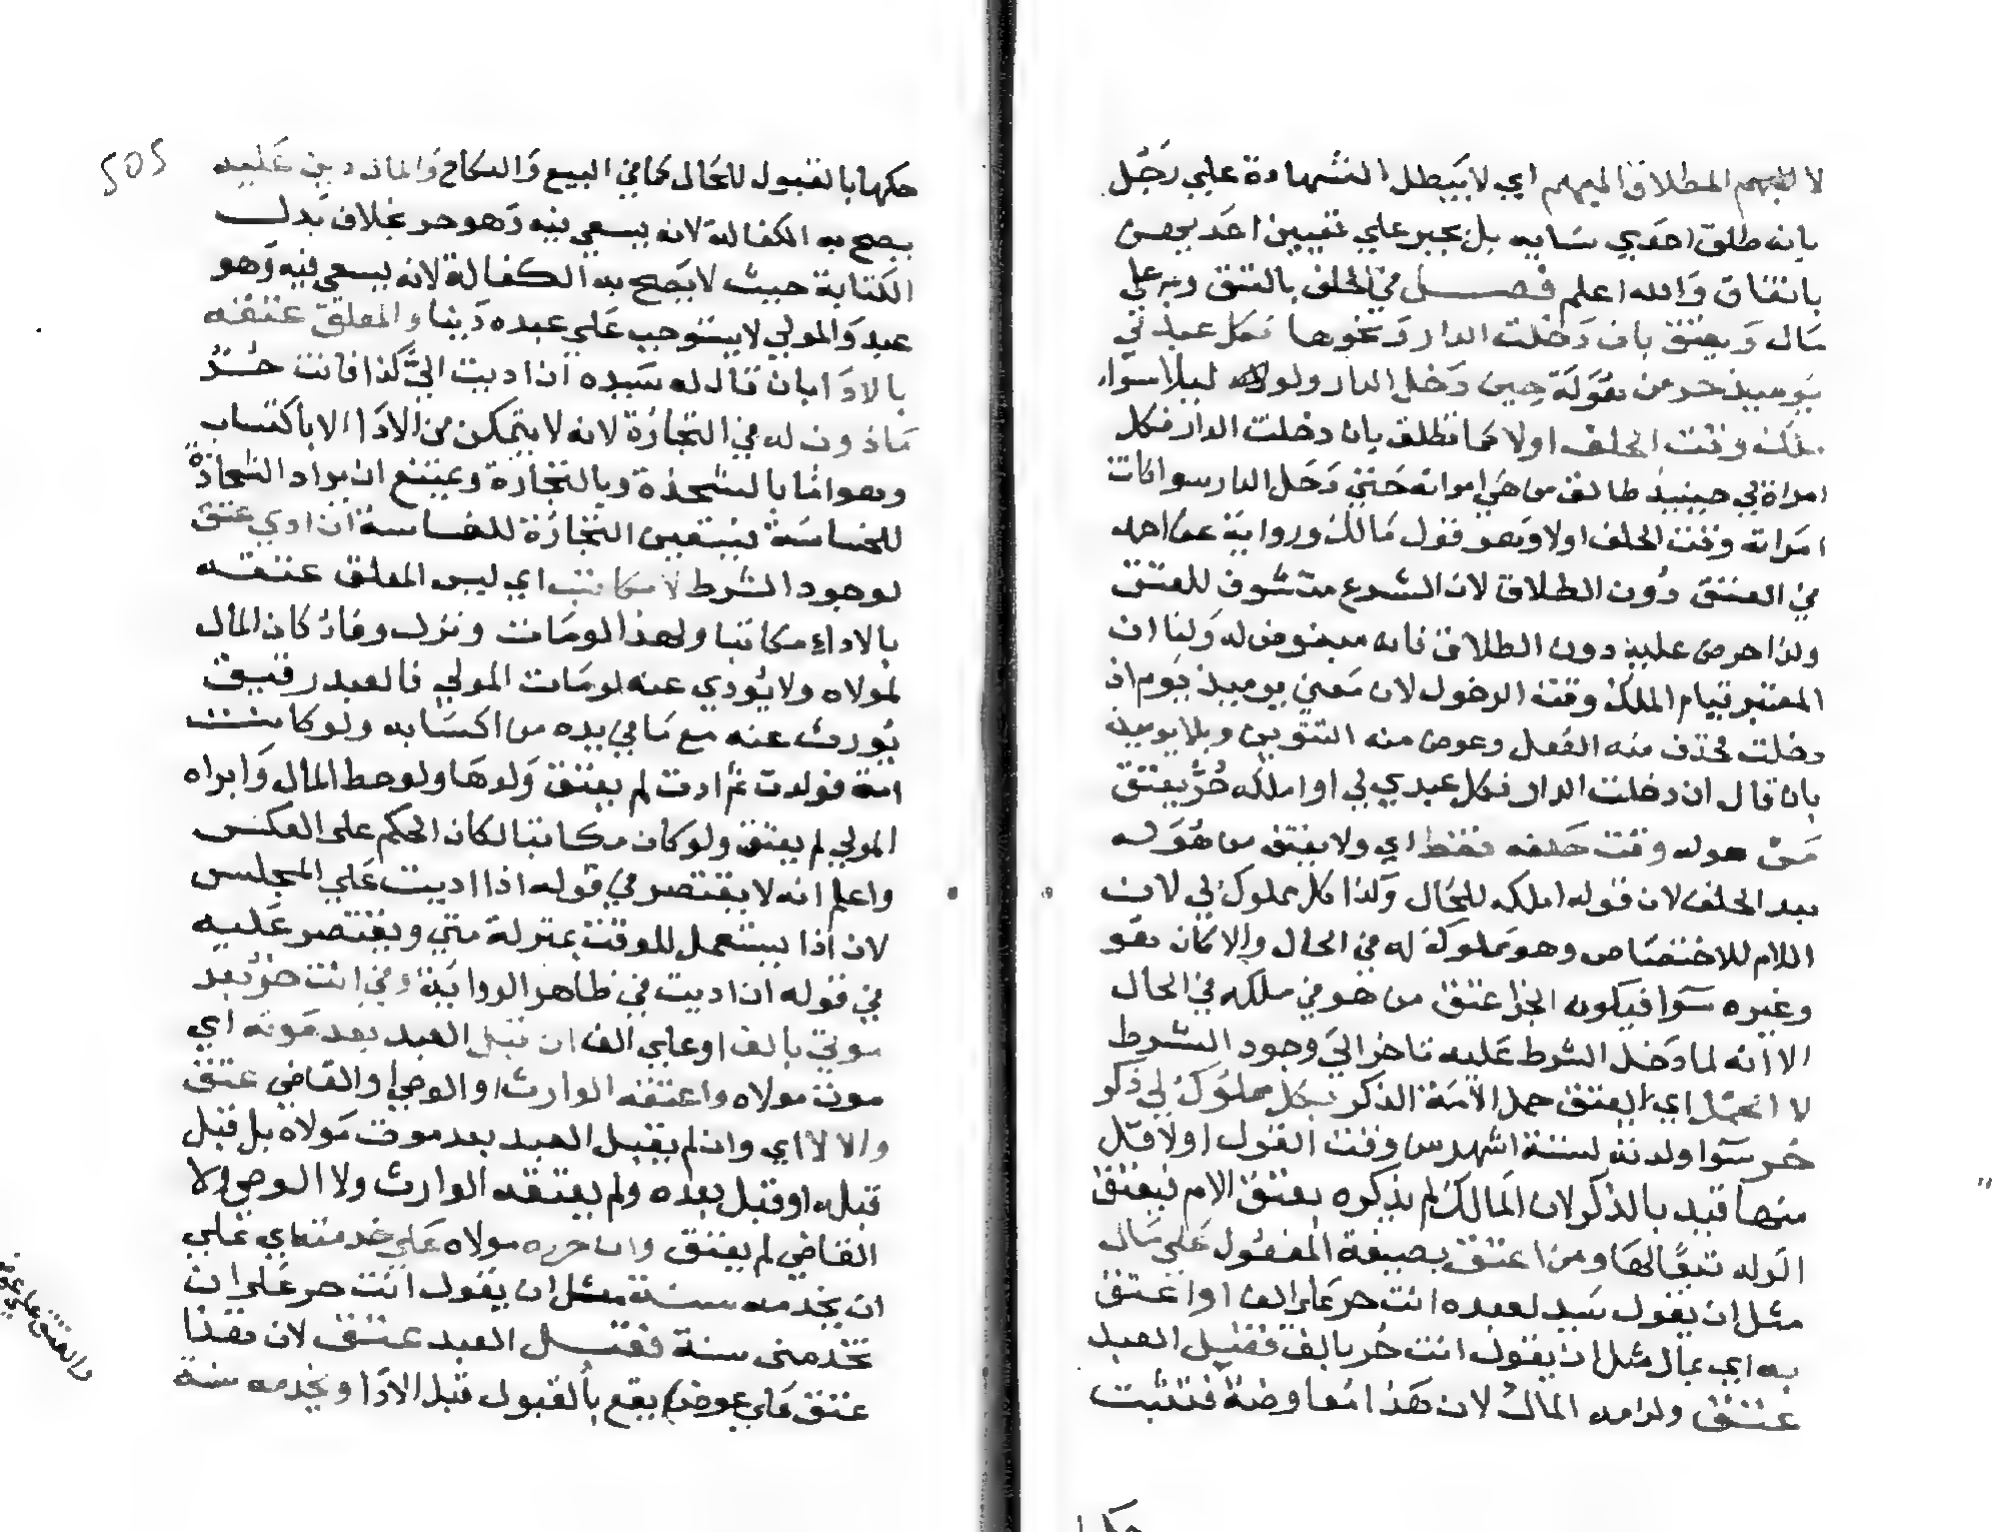 لا المبهم الطلاق المبهم اي لا يبطل الشهادة علي رجل
بانه طلق احدي نسايه بل يجبر علي تعيين احديهن
باتفاق والله اعلم فصل في الحلف بالعتق وبه علي
مال ويعتق بان دخلت الدار ونحوها فكل عبد لي
يوميذ حر من بقوله حين دخل الدار ولو ليلا سوا
ملكه وقت الحلف اولا كما تطلق بان دخلت الدار فكل
امراة لي حينيذ طالق من هي امراته حتي دخل الدار سوا كانت
امراته وقت الحلف اولا وهو قول مالك ورواية عن احمد
في العتق دون الطلاق لان الشرع متشوف للعتق
ولذا حرض عليه دون الطلاق فانه مبغوض له ولنا ان
المعتبر قيام الملك وقت الدخول لان معني يوميذ يوم اذ
دخلت فحذف منه الفعل وعوض منه التنوين وبلا يوميذ
بان قال ان دخلت الدار فكل عبدي لي او املكه حر يعتق
من هو له وقت حلفه فقط اي ولا يعتق من هو له
بعد الحلف لان قوله املكه للحال وكذا كل مملوك لي لان
اللام للاختصاص وهو مملوك له في الحال والا كان هو
وغيره سوا فيكون الجزا عتق من هو في ملكه في الحال
الا انه لما دخل الشرط عليه تاخر الي وجود الشرط
لا الحمل اي لا يعتق حمل الامة الذكر بكل مملوك لي ذكر
حر سوا ولدته لستة اشهر من وقت القول او لاقل
منها قيد بالذكر لان المالك لم يذكره بعتق الام فيعتق
الولد تبعا لها ومن اعتق بصيغة المفعول علي مال
مثل ان يقول سيد لعبده انت حر علي الف او اعتق
به اي بمال مثل ان يقول انت حر بالف فقبل العبد
عتق ولزمه المال لان هذا معاوضة فتثبت
حكمها
505
حكمها بالقبول للحال كما في البيع والنكاح والمال دين عليه
يصح به الكفالة لانه يسعي فيه وهو حر بخلاف بدل
الكتابة حيث لا يصح به الكفالة لانه يسعي فيه وهو
عبد والمولي لا يستوجب علي عبده دينا والمعلق عتقه
بالادا بان قال له سيده ان اديت الي كذا فانت حر
ماذون له في التجارة لانه لا يتمكن من الادا الا باكتساب
وهو اما بالشحذة وبالتجارة ويمتنع ان يراد الشحاذة
للخساسة فيتعين التجارة للخساسة ان ادي عتق
لوجود الشرط لا مكاتب اي ليس المعلق عتقه
بالاداء مكاتبا ولهذا لو مات وترك وفاء كان المال
لمولاه ولا يودي عنه لو مات المولي فالعبد رقيق
يورث عنه مع ما في يده من اكسابه ولو كانت
امة فولدت ثم ادت لم يعتق ولدها ولو حط المال وابراه
المولي لم يعتق ولو كان مكاتبا لكان الحكم علي العكس
واعلم انه لا يقتصر في قوله اذا اديت علي المجلس
لان اذا يستعمل للوقت بمنزلة متي ويقتصر عليه
في قوله ان اديت في ظاهر الرواية وفي انت حر بعد
موتي بالف او علي الف ان قبل العبد بعد موته اي
موت مولاه واعتقه الوارث او الوصي او القاضي عتق
والا لا اي وان لم يقبل العبد بعد موت مولاه بل قبل
قبله او قبل بعده ولم يعتقه الوارث ولا الوصي ولا
القاضي لم يعتق وان حرره مولاه علي خدمته اي علي
ان يخدمه سنة مثل ان يقول انت حر علي ان
تخدمني سنة فقبل العبد عتق لان هذا
عتق علي عوض يقع بالقبول قبل الادا ويخدمه سنة
والعتق علي عوض